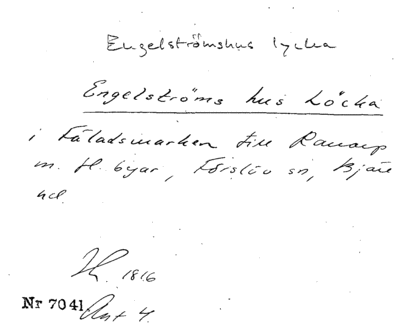 Engelströmshus lycka
Engelströms hus Löcka
i Fäladsmarken till Ranarp
m. fl. byar, Förslöv sn, Bjäre
hd.
1816
Nr 7041 Akt 4.